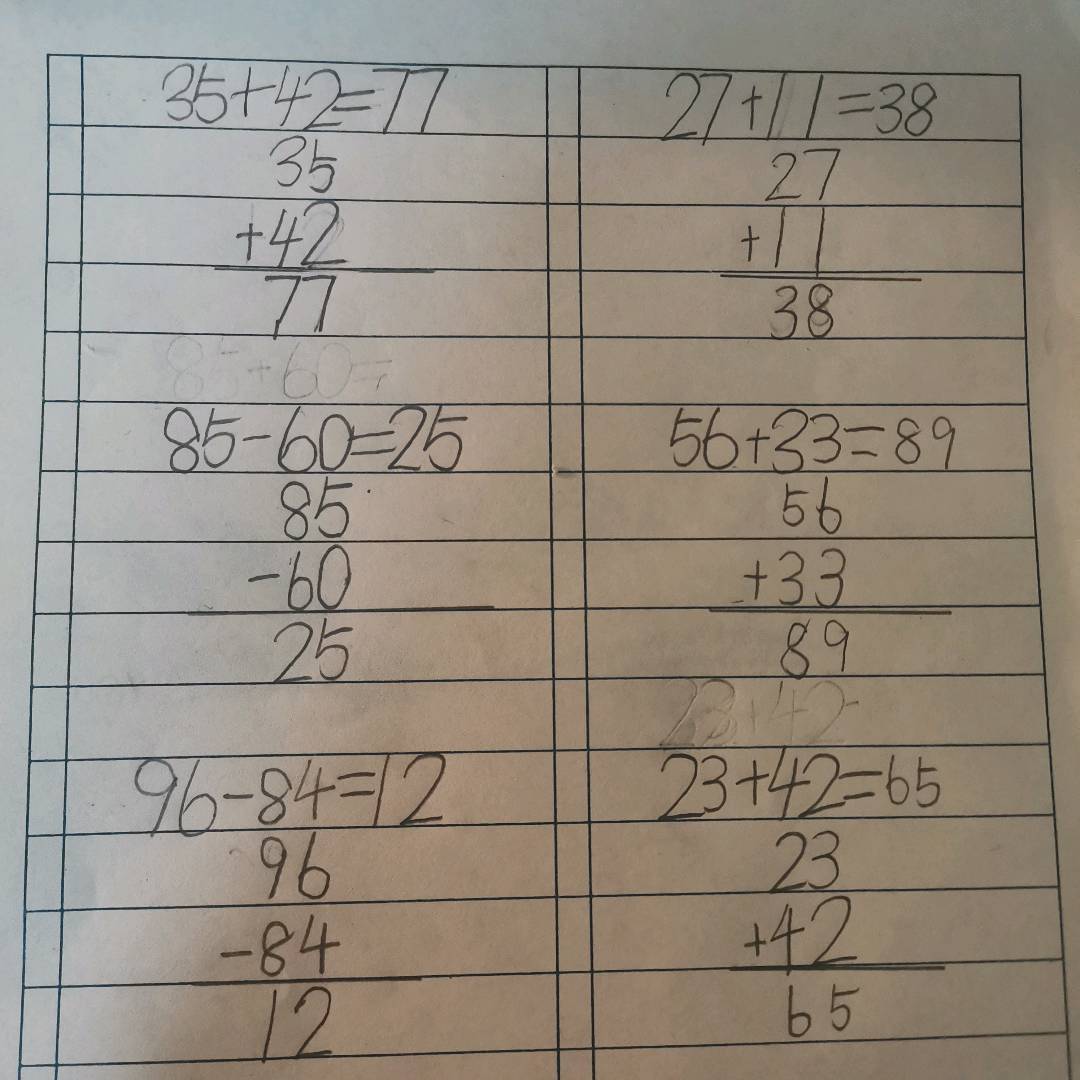 35+42=77
35
+42
77
85+60=
85-60=25
85
-60
25
96-84=12
96
-84
12
27+11=38
27
+11
38
56+33=89
56
+33
89
23+42
23+42=65
23
+42
65